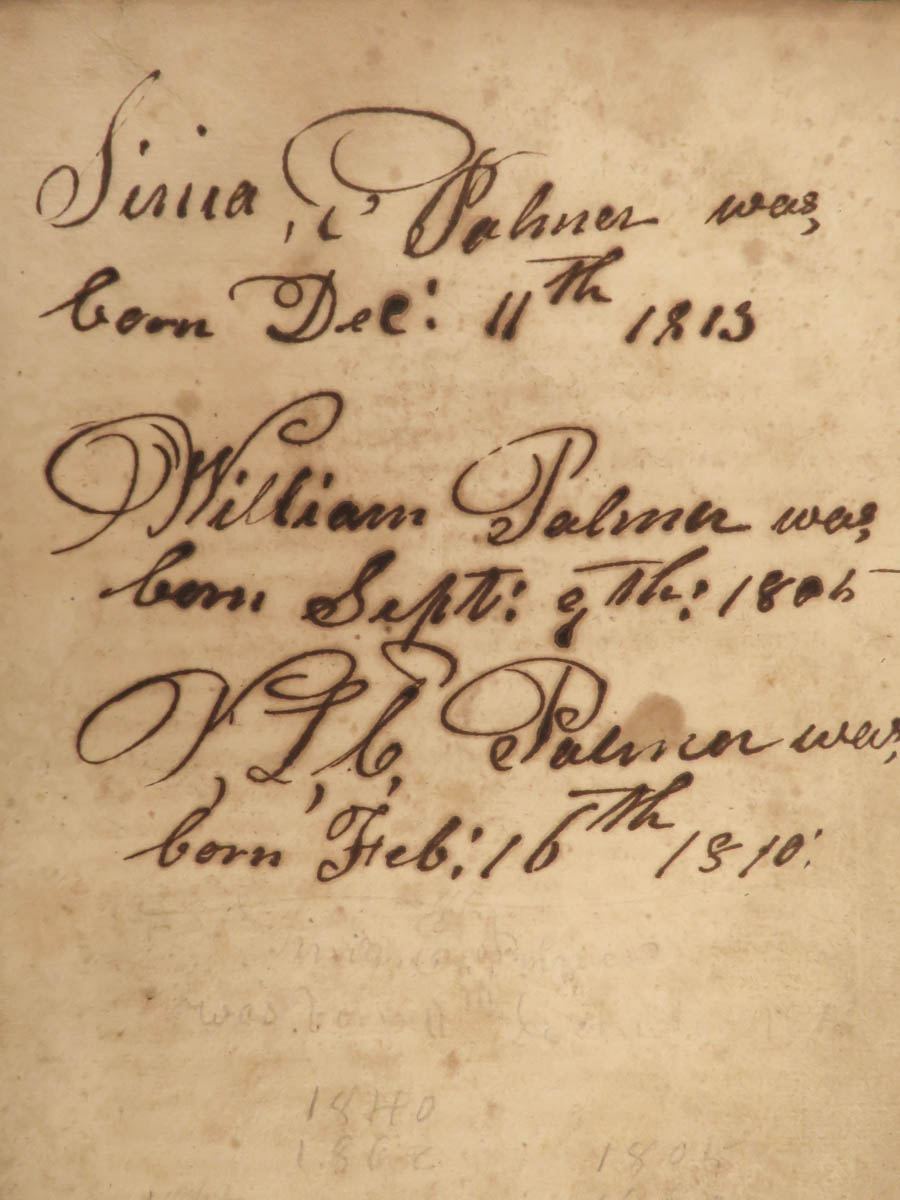 Sirua C Palmer was,
born Dec: 11th 1813
William Palmer was,
born Sept: 9th: 1805
P, C, Palmer was,
born Feb: 16th 1810:
was born 11th
1840
1862 1805